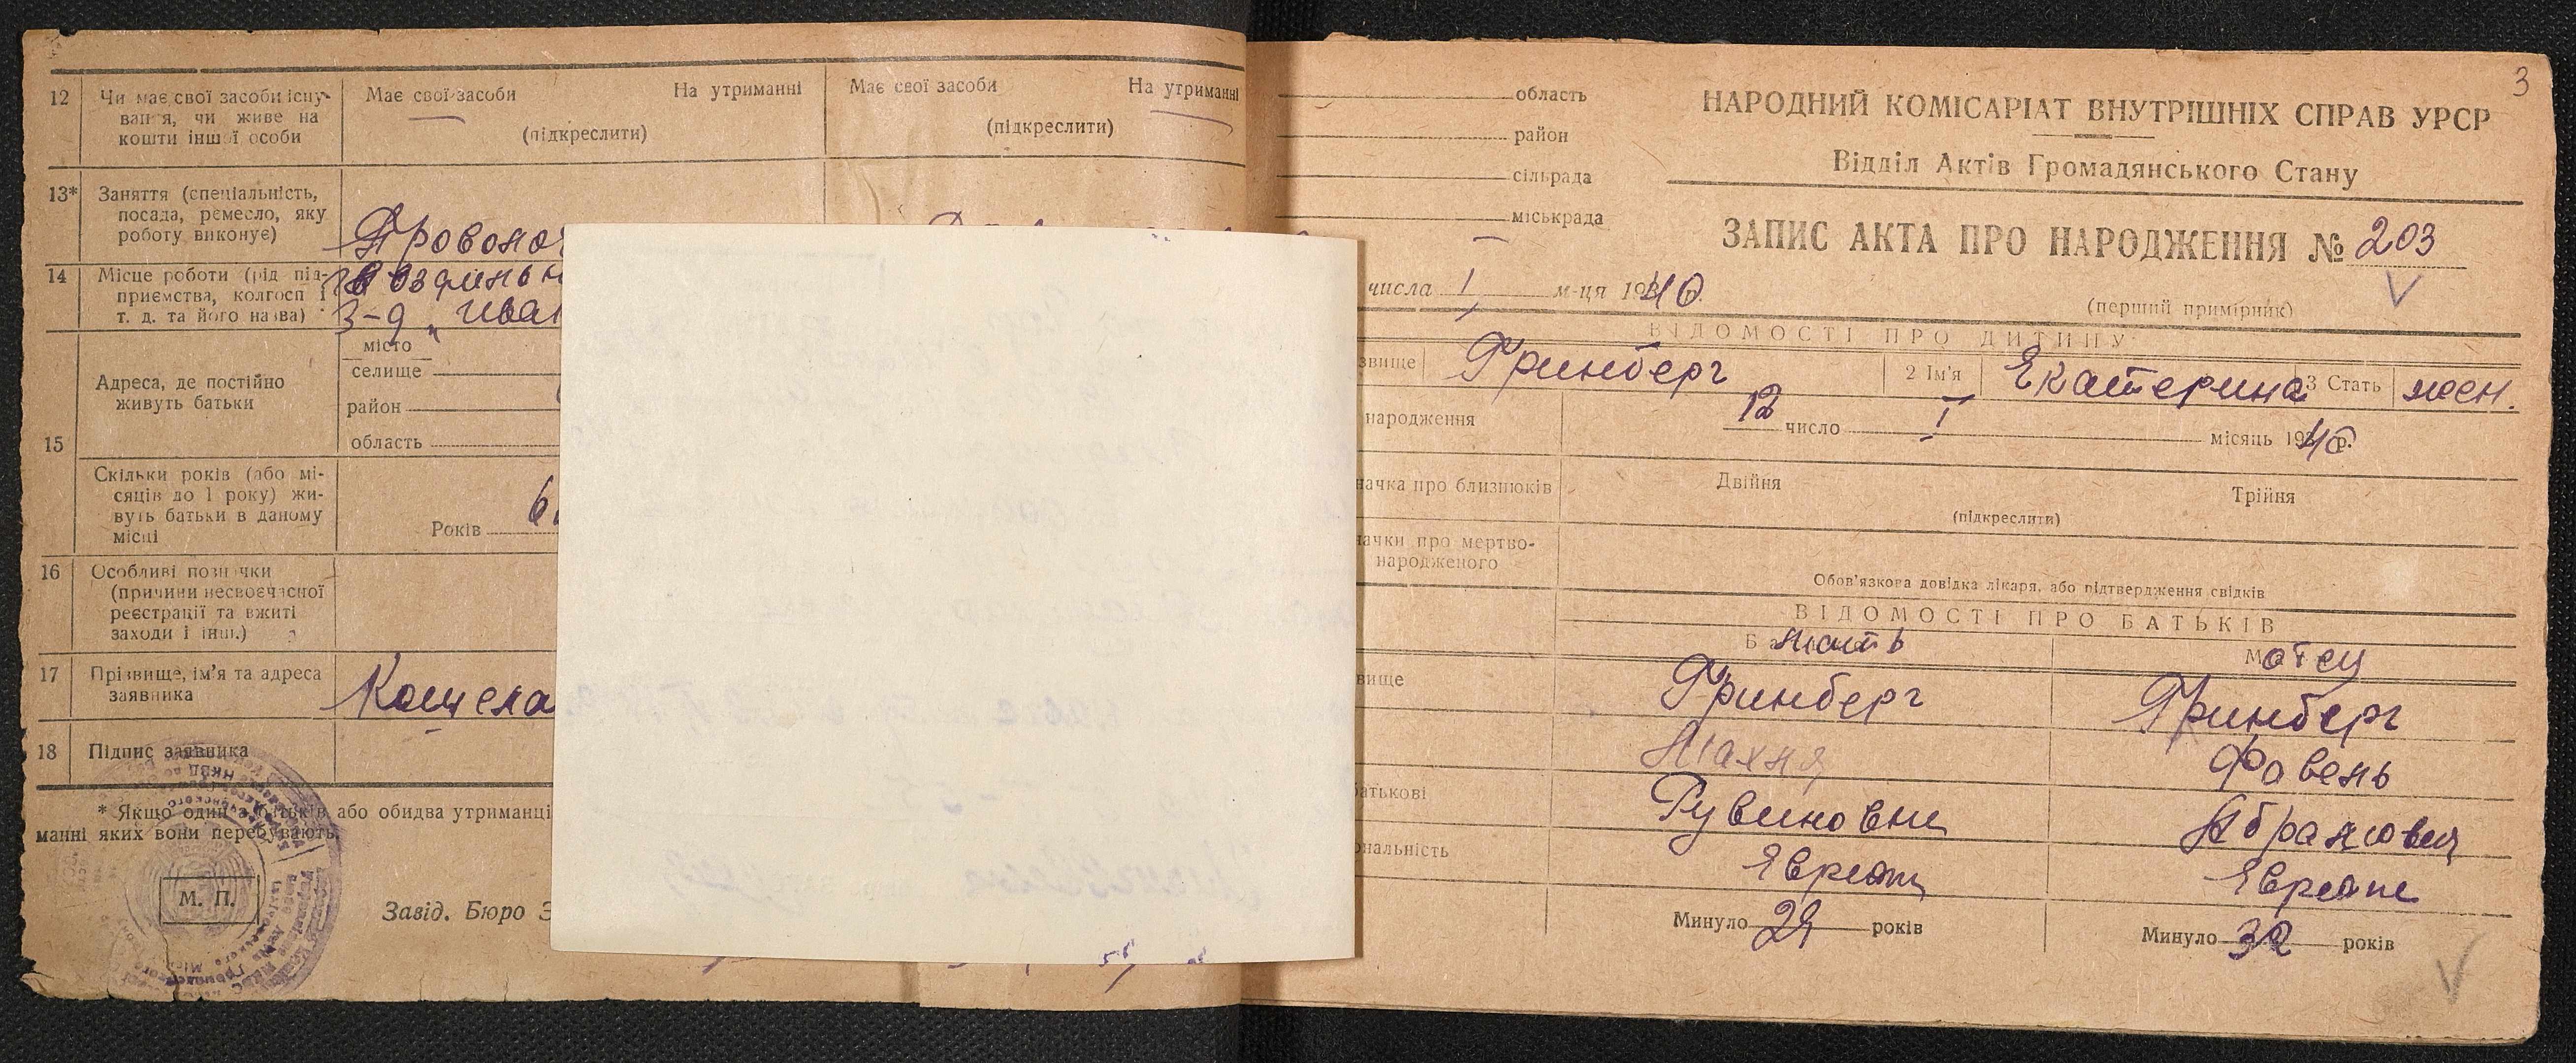 12 Чи має свої засоби існу-
вання, чи живе на
кошти іншої особи
Має свої засоби На утриманні
(підкреслити)
Має свої засоби На утриманні
(підкреслити)
13* Заняття (спеціальність,
посада, ремесло, яку
роботу виконує)
14 Місце роботи (рід під-
приємства, колгосп і
т. д. та його назва)
З-д „
15 Адреса, де постійно
живуть батьки
місто
селище
район
область
Скільки років (або мі-
сяців до 1 року) жи-
вуть батьки в даному
місці
Років
16 Особливі позначки
(причини несвоєчасної
реєстрації та вжиті
заходи і інш.)
17 Прізвище, ім'я та адреса
заявника
18 Підпис заявника
* Якщо один з батьків або обидва утриманці
манні яких вони перебувають.
М. П.
Завід. Бюро З
3
область
район
сільрада
міськрада
НАРОДНИЙ КОМІСАРІАТ ВНУТРІШНІХ СПРАВ УРСР
Відділ Актів Громадянського Стану
ЗАПИС АКТА ПРО НАРОДЖЕННЯ № 203
числа I м-ця 1940 р.
(перший примірник)
ВІДОМОСТІ ПРО ДИТИНУ
звище Гринберг 2 Ім'я Екатерина 3 Стать жен.
народження 12 число I місяць 1940 р.
начка про близнюків Двійня Трійня
(підкреслити)
начки про мертво-
народженого
Обов'язкова довідка лікаря, або підтвердження свідків
ВІДОМОСТІ ПРО БАТЬКІВ
мать отец
вище Гринберг Гринберг
Махня Фавень
батькові Рувиновна Абрамович
ональність
Минуло 29 років Минуло 32 років